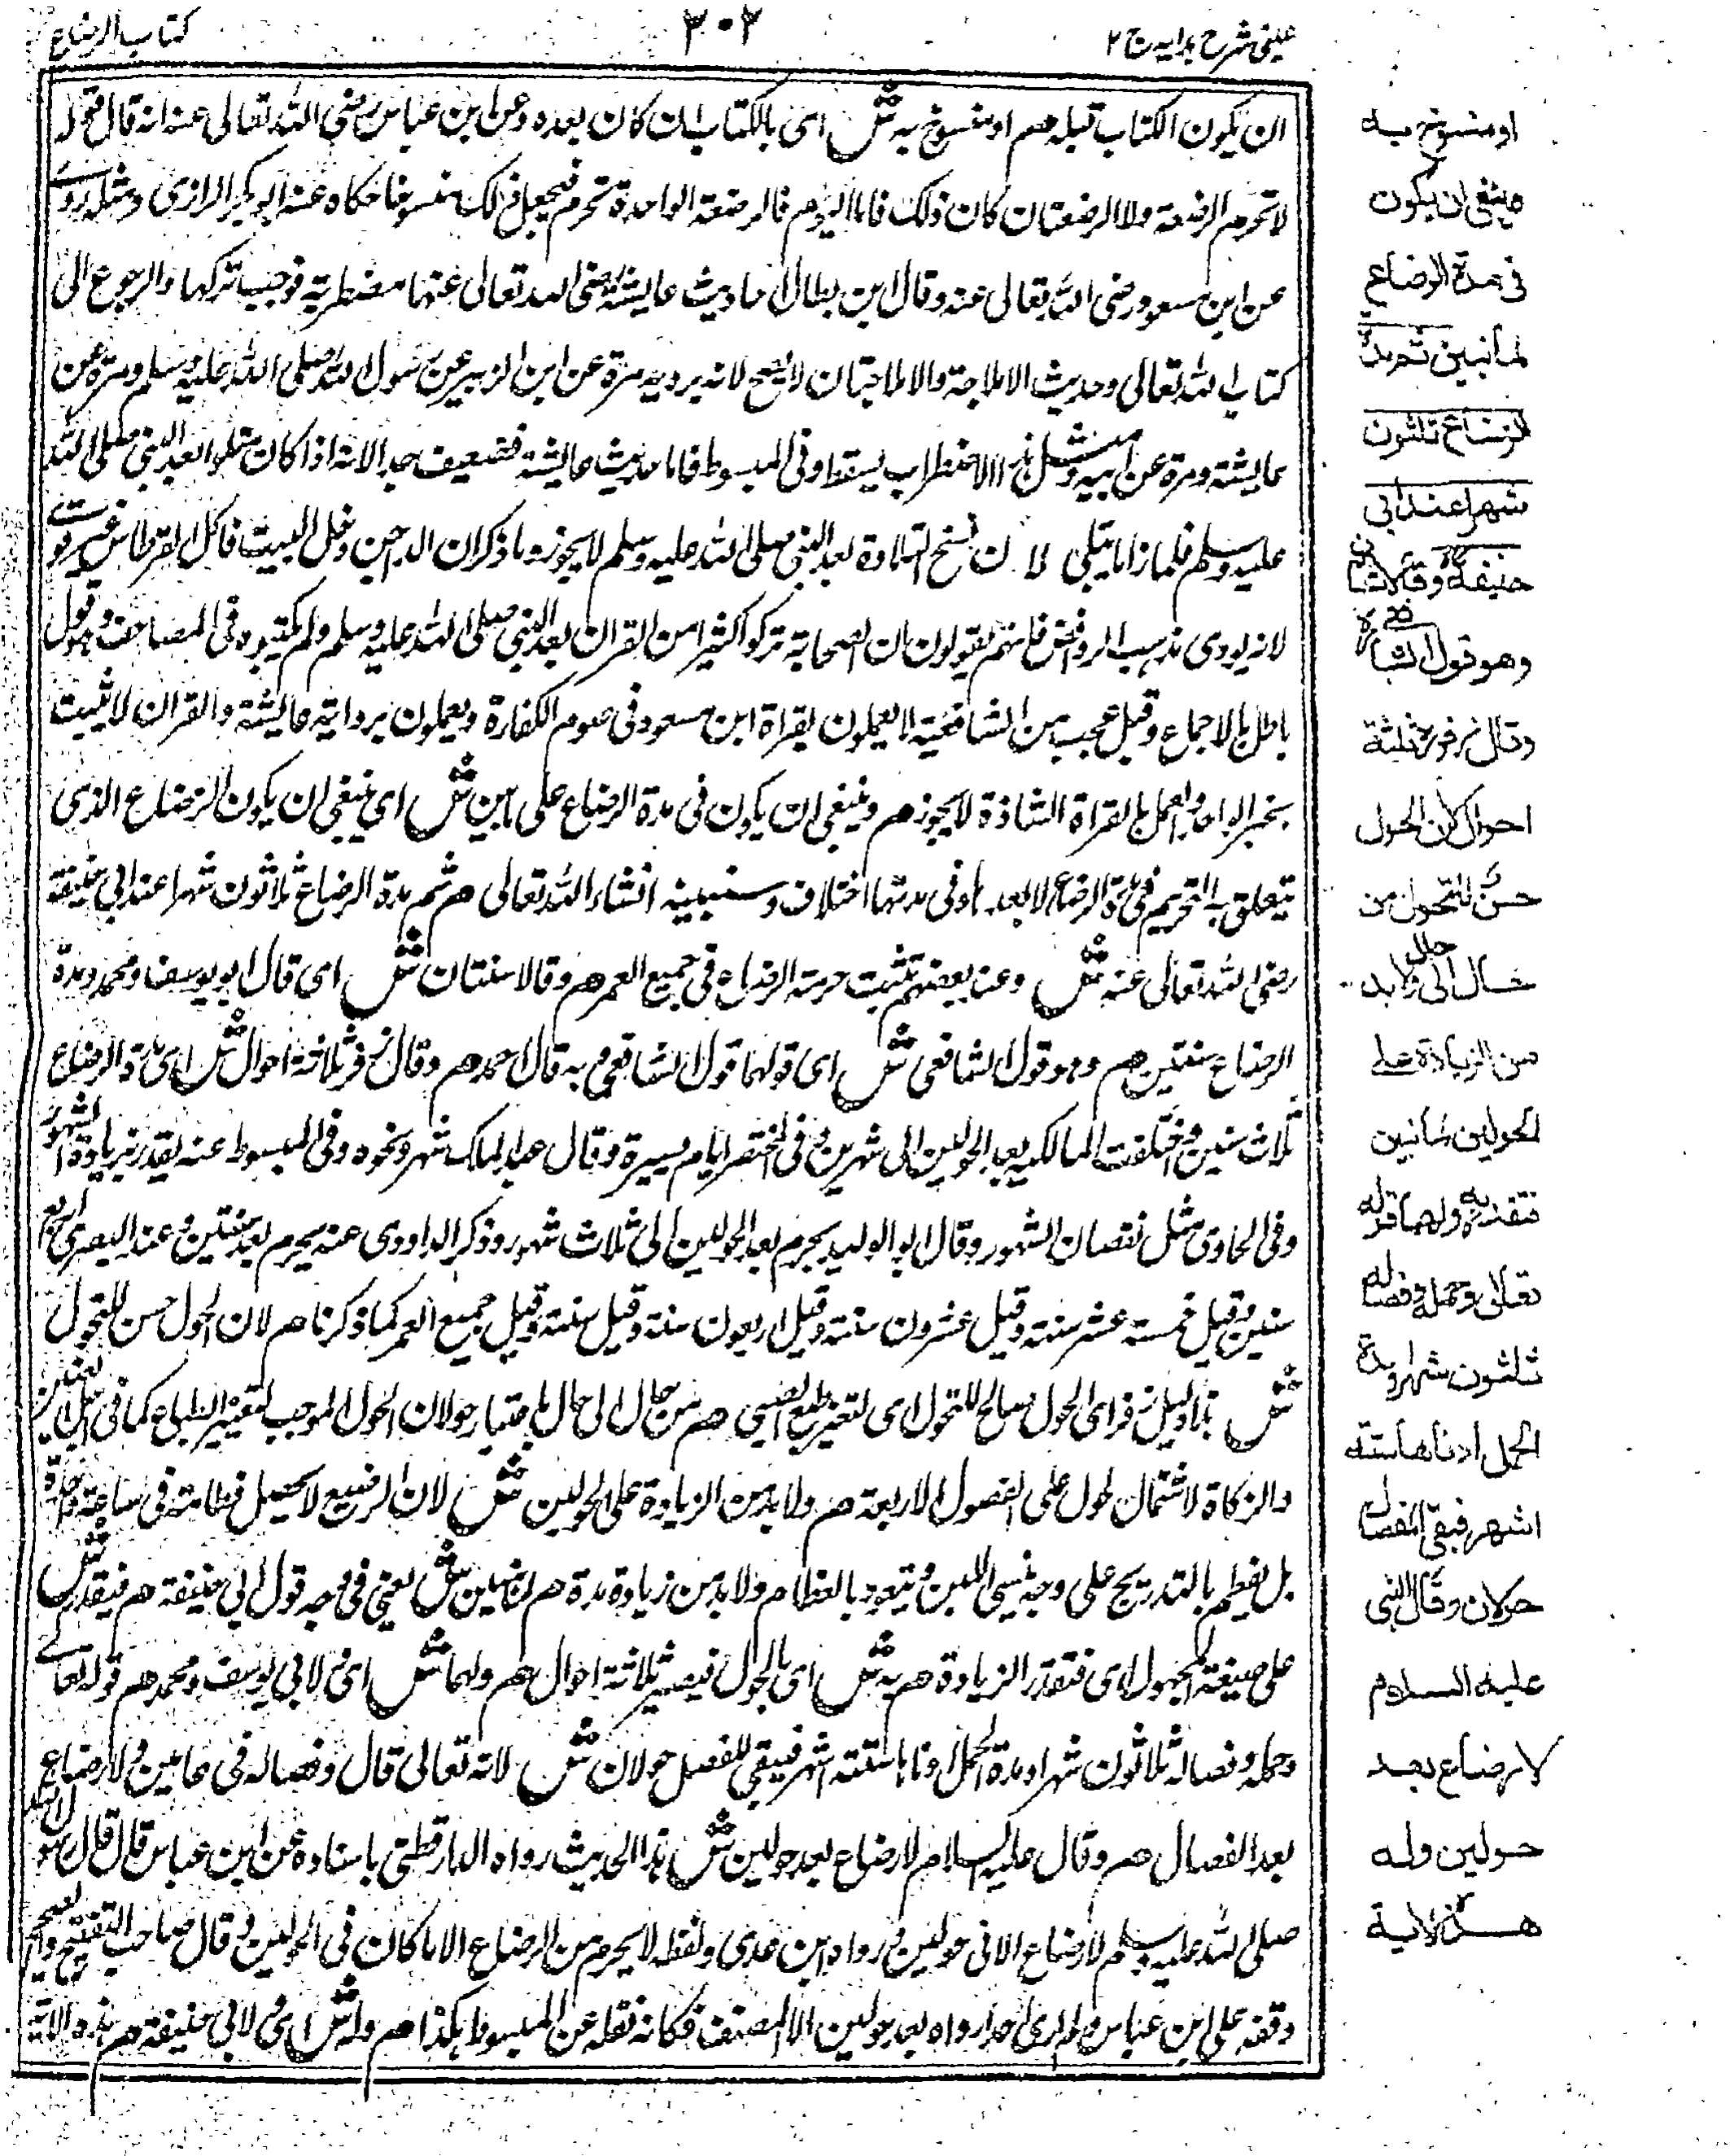 عینی شرح ہدایہ ج ٢
٣٠٢
کتاب الرضاع
ان یکون الکتاب قبلہ هم او منسوخ بہ ش ای بالکتاب ان کان بعدہ وعن ابن عباس رضی اللہ تعالی عنہ انہ قال قولہ
لا تحرم الرضعة ولا الرضعتان کان ذلک فاما الیوم فالرضعة الواحدة تحرم فجعل ذلک منسوخا حکاہ عنہ ابو بکر الرازی ومثلہ روی
عن ابن مسعود رضی اللہ تعالی عنہ وقال ابن بطال احادیث عایشة رضی اللہ تعالی عنہا مضطربة فوجب ترکہا والرجوع الی
کتاب اللہ تعالی وحدیث الاملاجة والاملاجتان لا یصح لانہ یرویہ مرة عن ابن الزبیر عن رسول اللہ صلی اللہ علیہ وسلم ومرة عن
عایشة ومرة عن ابیہ ومثل ہذا الاضطراب یسقط وفی المبسوط فاما حدیث عایشة فضعیف جدا لانہ اذا کان متلوا بعد النبی صلی اللہ
علیہ وسلم فلماذا لا یتلی لان نسخ التلاوة بعد النبی صلی اللہ علیہ وسلم لا یجوز وما ذکر ان الداجن دخل البیت فاکل القرطاس غیر قوی
لانہ یودی مذہب الروافض فانہم یقولون بان الصحابة ترکوا کثیرا من القران بعد النبی صلی اللہ علیہ وسلم ولم یکتبوہ فی المصاحف وہو قول
باطل بالاجماع وقیل عجب من الشافعیة لا یعملون بقراة ابن مسعود فی صوم الکفارة ویعملون بروایة عایشة والقران لا یثبت
بخبر الواحد والعمل بالقراة الشاذة لا یجوز هم وینبغی ان یکون فی مدة الرضاع علی ما نبین ش ای ینبغی ان یکون الرضاع الذی
یتعلق بہ التحریم فی مدة الرضاع لا بعدہا وفی مدتہا اختلاف وسنبینہ انشاء اللہ تعالی هم ثم مدة الرضاع ثلاثون شہرا عند ابی حنیفة
رضی اللہ تعالی عنہ ش وعند بعضہم تثبت حرمة الرضاع فی جمیع العمر هم وقالا سنتان ش ای قال ابو یوسف ومحمد مدة
الرضاع سنتین هم وہو قول الشافعی ش ای قولہما قول الشافعی وبہ قال احمد هم وقال زفر ثلاثة احوال ش ای مدة الرضاع
ثلاث سنین واختلفت المالکیة بعد الحولین الی شہرین وفی المختصر ایام یسیرة وقال عبد الملک شہر ونحوہ وفی المبسوط عنہ یقدر بزیادة الشہور
وفی الحاوی مثل نقصان الشہور وقال ابو الولید یحرم بعد الحولین الی ثلاث شہور وذکر الداودی عنہ یحرم بعد سنتین وعند البصری اربع
سنین وقیل خمستہ عشر سنة وقیل عشرون سنة وقیل اربعون سنة وقیل سنة وقیل جمیع العمر کما ذکرنا هم لان الحول حسن للتحول
ش ہذا دلیل زفر ای الحول صالح للتحول ای لتغیر طبع الصبی هم من حال الی حال ش باعتبار حولان الحول الموجب لتغییر الطباع کما فی اجل العنین
والزکاة لاشتمال الحول علی الفصول الاربعة هم ولا بد من الزیادة علی الحولین ش لان الرضیع لا یحصل فطامتہ فی ساعة واحدة
بل یفطم بالتدریج علی وجہ ینسی اللبن ویتعود بالطعام ولا بد من زیادة مدة هم لما نبین ش یعنی فی وجہ قول ابی حنیفة هم فیقدر ش
علی صیغة المجہول ای فتقدر الزیادة هم بہ ش ای بالحول فیصیر ثلاثة احوال هم ولہما ش ای لابی یوسف ومحمد هم قولہ تعالے
وحملہ وفصالہ ثلاثون شہرا ومدة الحمل ادناہا ستة اشہر فیبقی للفصل حولان ش لانہ تعالی قال وفصالہ فی عامین ولا رضاع
بعد الفصال هم وقال علیہ السلام لا رضاع بعد حولین ش ہذا الحدیث رواہ الدارقطنی باسنادہ عن ابن عباس قال قال رسول اللہ
صلی اللہ علیہ وسلم لا رضاع الا فی حولین ورواہ ابن عدی ولفظہ لا یحرم من الرضاع الا ما کان فی الحولین وقال صاحب التنقیح والصحیح
وقفہ علی ابن عباس ولم ار احدا رواہ بعد حولین الا المصنف فکانہ نقلہ عن المبسوط ہکذا هم ولہ ش ای لابی حنیفة هم ہذہ الآیة
او منسوخ به
وینبغی ان یکون
فی مدة الرضاع
لما نبین ثم مدة
الرضاع ثلثون
شهرا عند ابی
حنیفة وقالا سنتان
وهو قول الشافعی
وقال زفر ثلثة
احوال لان الحول
حسن للتحول من
حال الی حال ولا بد
من الزیادة علی
الحولین لما نبین
فتقدر به ولهما قوله
تعالی وحمله وفصاله
ثلثون شهرا ومدة
الحمل ادناها ستة
اشهر فبقی للفصال
حولان وقال النبی
علیه السلام
لا رضاع بعد
حولین وله
هذه الآیة